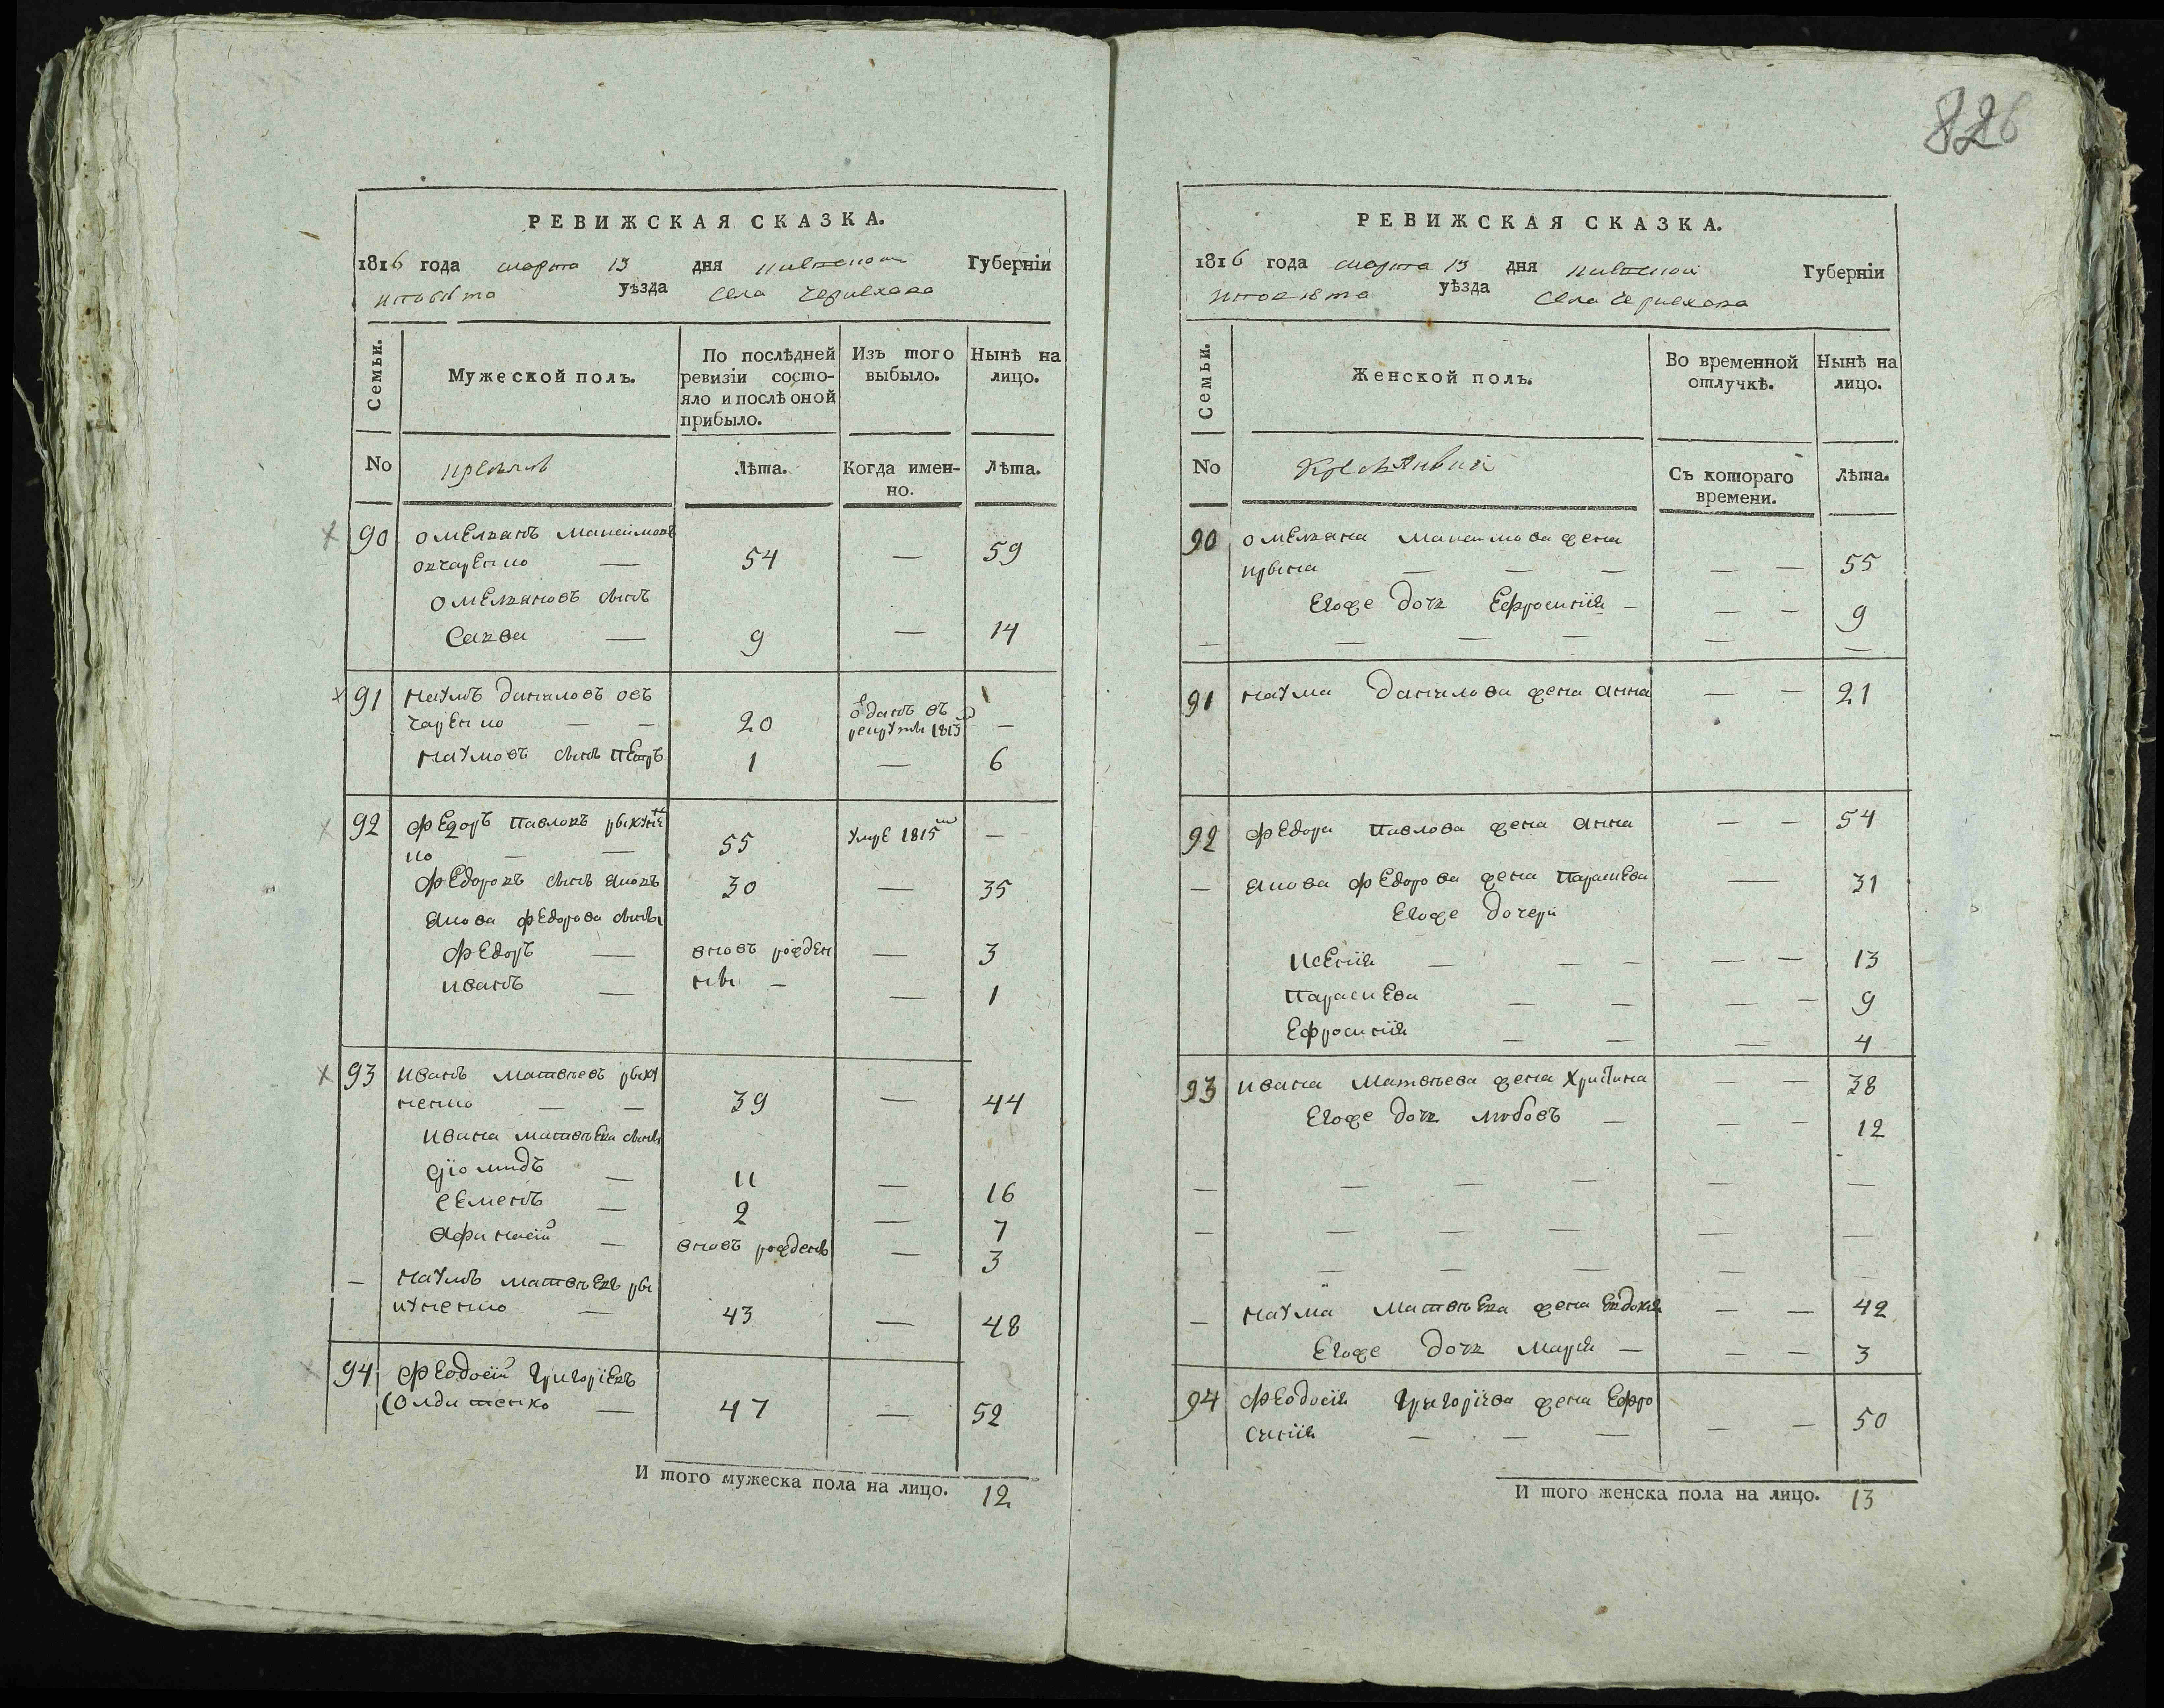 826
РЕВИЖСКАЯ СКАЗКА.
1816 года марта 13 дня киевской Губерніи
и повѣта уѣзда села Черниехова
Семьи.
Мужеской полъ.
По послѣдней ревизіи состо-
яло и послѣ оной
прибыло.
Изъ того выбыло.
Нынѣ на лицо.
No
Лѣта.
Когда имен-
но.
Лѣта.
90 Омелянъ Максимовъ
овчаренко — 54 — 59
Омеляновъ сынъ
Савва — 9 — 14
91 Наумъ Даниловъ ов
чаренко — — 20 отданъ въ рекруты 1813 —
Наумовъ сынъ Петръ 1 — 6
92 Федоръ Павловъ рыкуне
ко — — 55 умре 1815 —
Федоровъ сынъ Яковъ 30 — 35
Якова Федорова сыны
Федоръ — вновь рожден — 3
Иванъ — ны — — 1
93 Иванъ Матвѣевъ рыку
ненко — — 39 — 44
Ивана Матвѣева сыны
Діомидъ — 11 — 16
Семенъ — 2 — 7
Афанасій — вновь рожденъ — 3
— Наумъ Матвѣевъ ры
куненко — 43 — 48
94 Феодосій Григоріевъ
Солдатенко — 47 — 52
И того мужеска пола на лицо. 12
РЕВИЖСКАЯ СКАЗКА.
1816 года марта 13 дня киевской Губерніи
и повѣта уѣзда Села Черниехова
Семьи.
Женской полъ.
Во временной отлучкѣ.
Нынѣ на лицо.
No
Съ котораго времени.
Лѣта.
90 Омеляна Максимова жена
Ирина — — — — — 55
Егоже дочь Ефросинія — — — 9
— — — — — —
91 Наума Данилова жена Анна — — 21
92 Федора Павлова жена Анна — — 54
— Якова Федорова жена Параскева — 31
Егоже дочери
Ксенія — — — — — 13
Параскева — — — — 9
Ефросинія — — — 4
93 Ивана Матвѣева жена Христина — — 38
Егоже дочь Любовъ — — — 12
— — — — — —
— — — — — —
— — — — —
— Наума Матвѣева жена Евдокія — — 42
Егоже дочь Марія — — — 3
94 Феодосія Григоріева жена Ефро
синія — — — — — 50
И того женска пола на лицо. 13